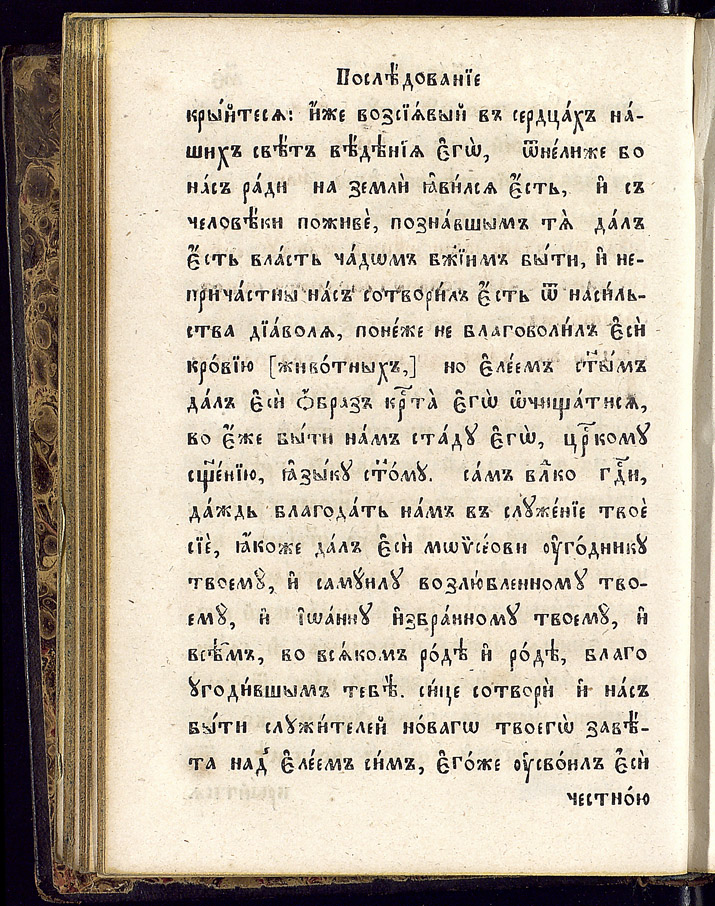 Послѣ́дованїе
кры́йтеся: и҆́же возсїѧ́вый въ сердца́хъ на́-
шихъ свѣ́тъ вѣ́дѣнїѧ є҆гѡ̀, ѿне́лиже бо
на́съ ра́ди на землѝ ꙗ҆ви́лсѧ є҆́сть, и҆ съ
человѣ́ки поживѐ, позна́вшымъ тѧ̀ да́лъ
є҆́сть вла́сть ча́дѡмъ бж҃їимъ бы́ти, и҆ не-
прича́стны на́съ сотвори́лъ є҆́сть ѿ наси́ль-
ства дїа́волѧ, поне́же не благоволи́лъ є҆сѝ
кро́вїю [живо́тныхъ,] но є҆ле́емъ ст҃ы́мъ
да́лъ є҆сѝ ѻ҆́бразъ крⷭ҇та̀ є҆гѡ̀ ѡ҆чища́тисѧ,
во є҆́же бы́ти на́мъ ста́ду є҆гѡ̀, црⷭ҇кому
сщ҃е́нїю, ꙗ҆зы́ку ст҃о́му. са́мъ влⷣко гдⷭ҇и,
да́ждь благода́ть на́мъ въ служе́нїе твоѐ
сїѐ, ꙗ҆́коже да́лъ є҆сѝ мѡѷсе́ови ᲂу҆го́днику
твоемꙋ̀, и҆ самꙋи́лꙋ возлю́бленномꙋ тво-
емꙋ̀, и҆ і҆ѡа́ннꙋ и҆збра́нномꙋ твоемꙋ̀, и҆
всѣ̑мъ, во всѧ́комъ ро́дѣ и҆ ро́дѣ, благо
ꙋгоди́вшымъ тебѣ̀. си́це сотворѝ и҆ на́съ
бы́ти слꙋжи́телей но́вагѡ твоегѡ̀ завѣ́-
та над̾ є҆ле́емъ си́мъ, є҆го́же ᲂу҆сво́илъ є҆сѝ
честно́ю